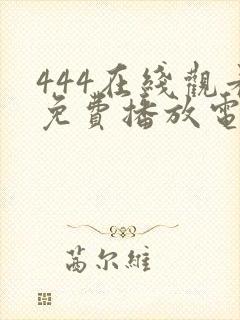 444在綫觀
免費播放電
茵尔維